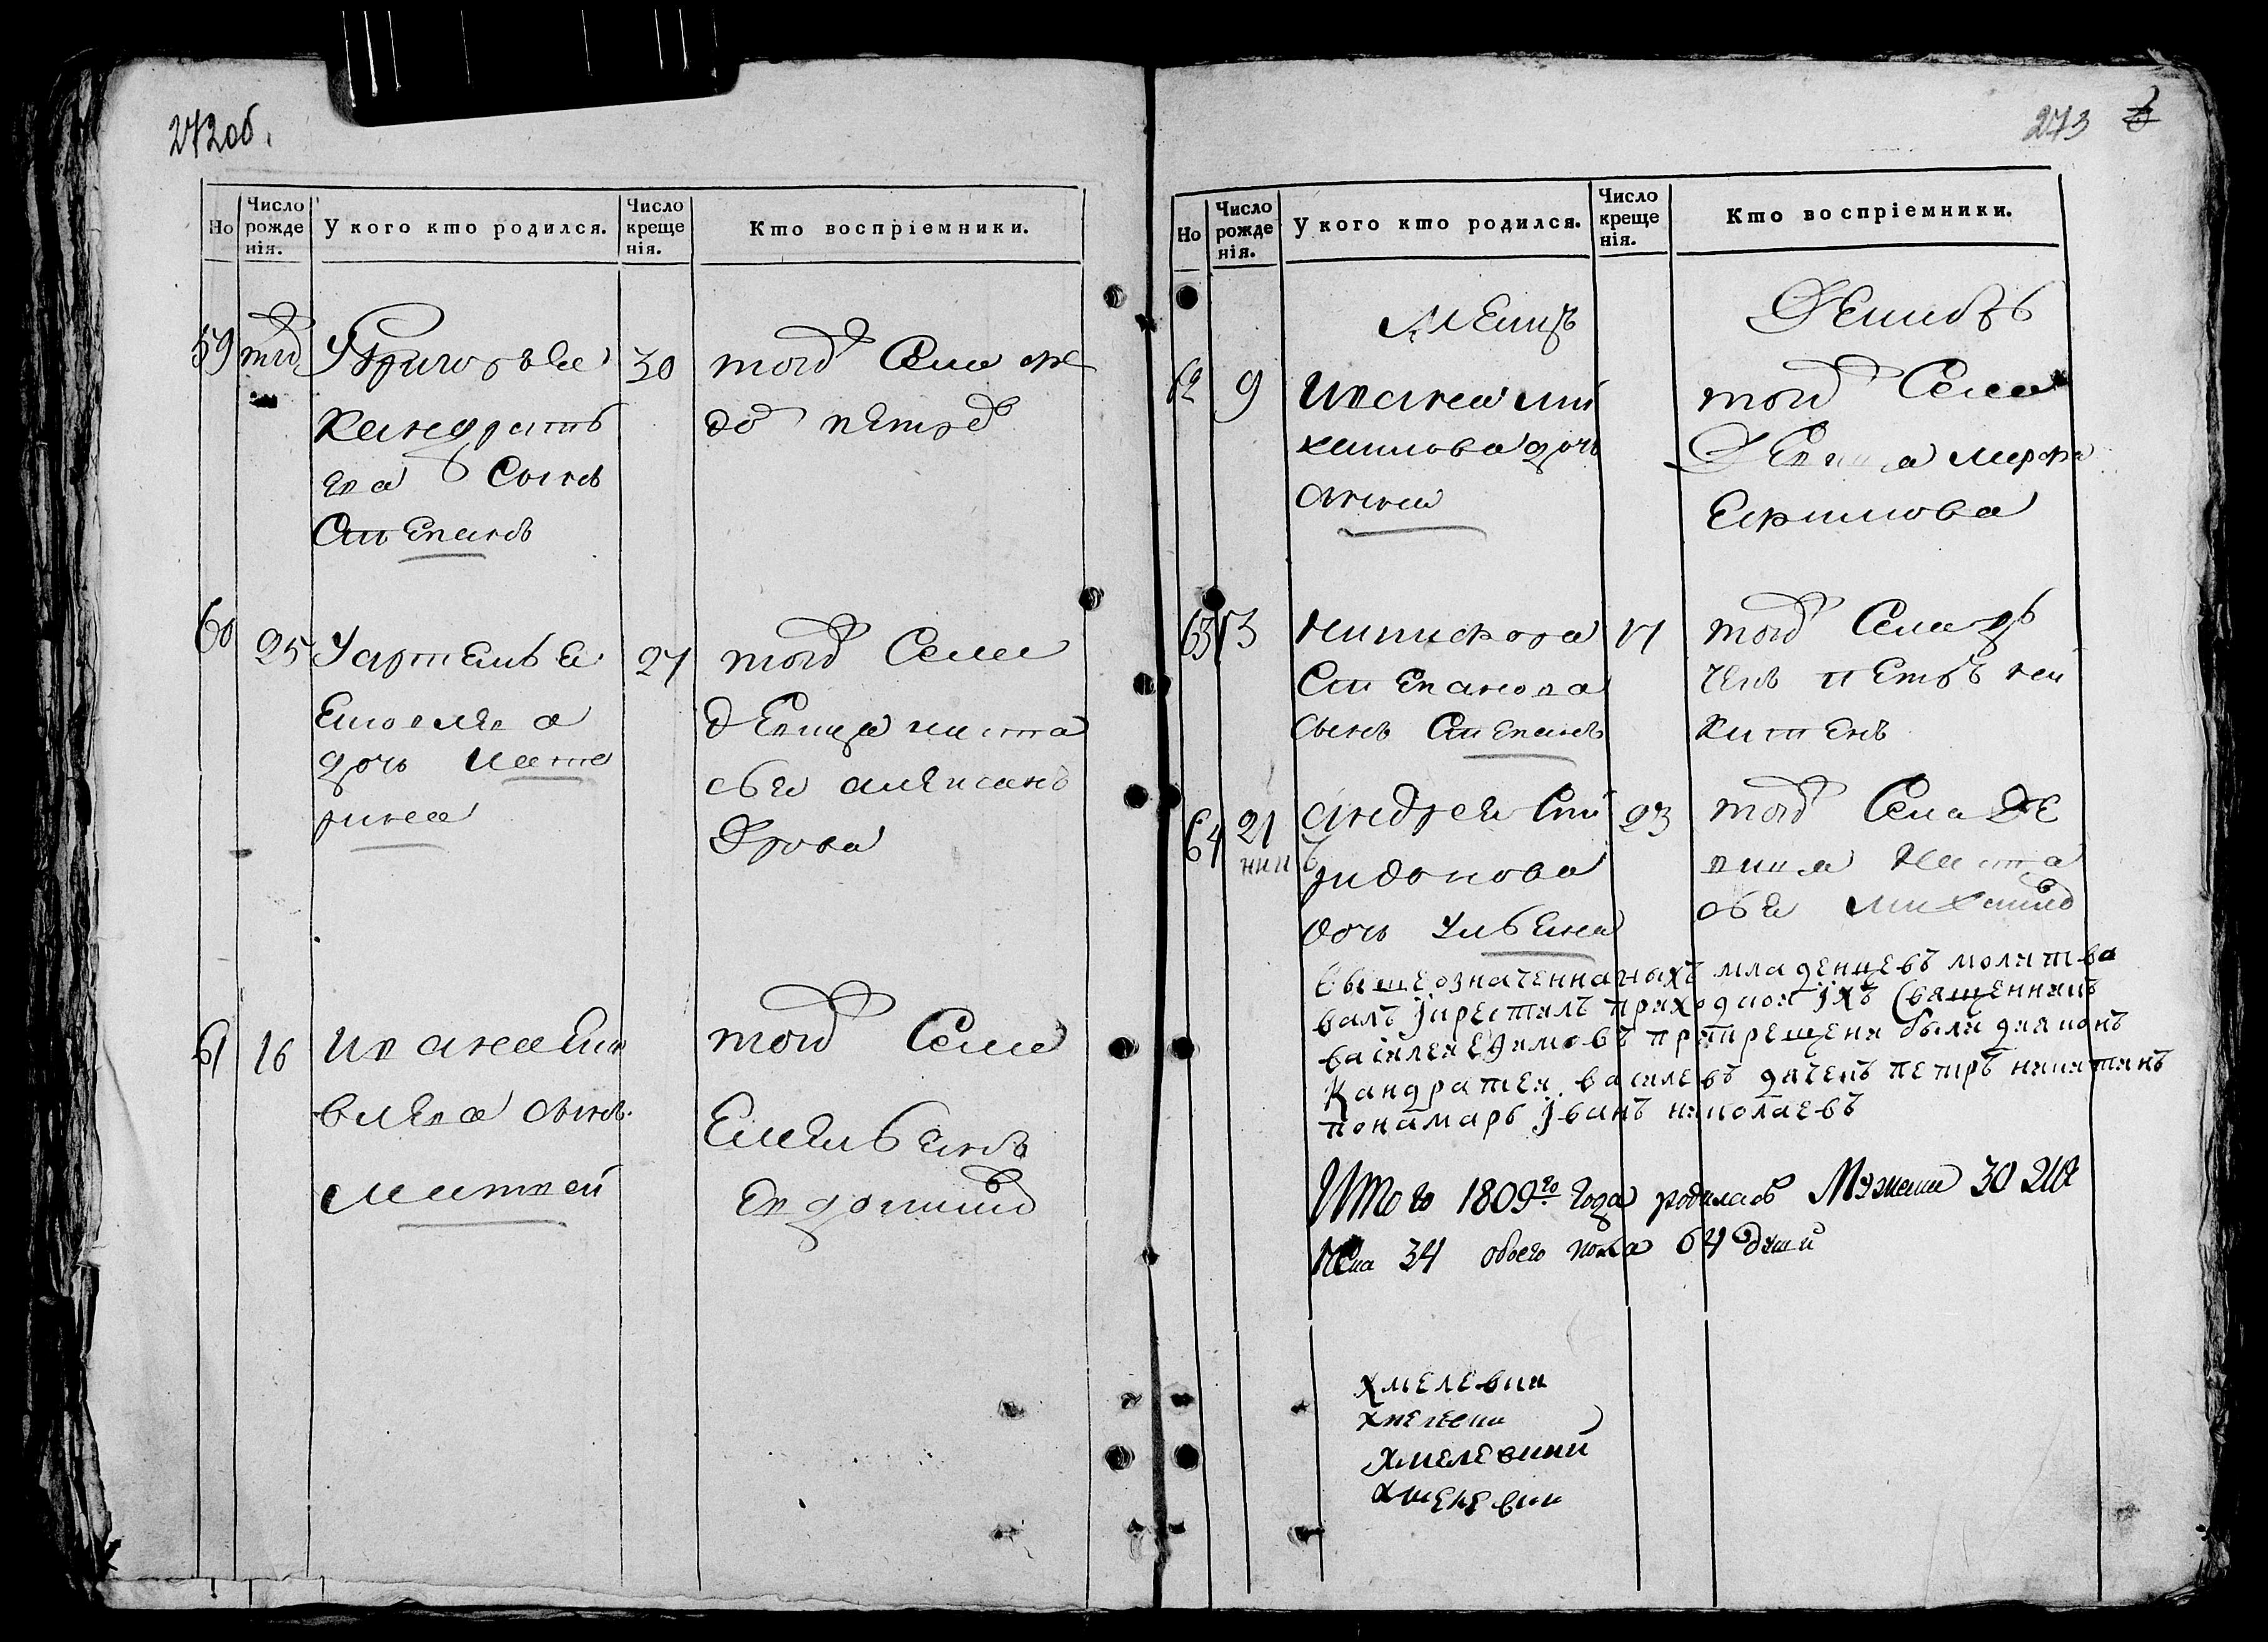 272 об.
Но
Число рожденія.
У кого кто родился.
Число крещенія.
Кто воспріемники.
59
тго
У Григорья
Кандрать
ева Сынъ
Степанъ
30
того Села
Петро
60
25
У артемья
дочь Кате
рина
27
того Села
девица наста
сья алексан
дрова
61
16
Ивана
влева сынъ
Матвей
того Села
Емельянъ
Евдокимо
273
Но
Число рожденія.
У кого кто родился.
Число крещенія.
Кто воспріемники.
62
9
Ивана Ми
хаилова дочь
Анна
того Села
Девица марфа
Ефимова
63
13
Никифора
Степанова
сынъ Степанъ
17
того Села дь
чекъ Петръ ни
китенъ
64
21
Андрея Спи
ридонова
дочь Ульяна
23
того Села де
вица Наста
сья Михаило
вышеозначеннаныхъ младенцевъ молитва
валъ Iкрестилъ приходкои Iхъ Священникъ
василеи Ефимовъ прикрещени были дияконъ
Кандратеи василевъ дячекъ петръ никитинъ
понамарь Iванъ николаевъ
Итого 1809го года родилась Мужеска 30 Же
нска 34 обоего пола 64 души
хмелевки
хмелевки
хмелевкии